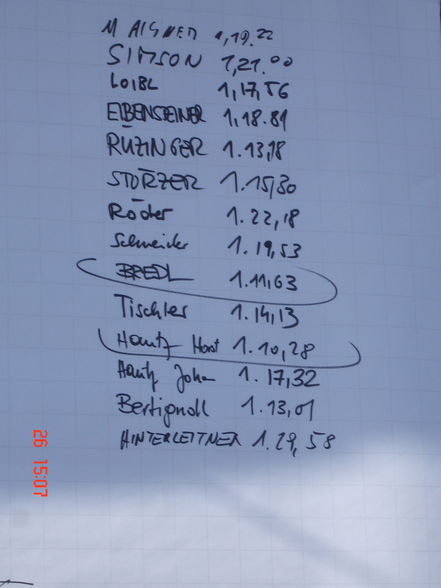 M AIGNER 1,19.22
SIMSON 1,21.00
LOIBL 1,17,56
EIBENSTEINER 1,18.81
RUZINGER 1.13,18
STÖRZER 1.15,30
Röder 1.22,18
Schneider 1.19,53
BREDL 1.11,63
Tischler 1.14,13
Hautz Horst 1.10,28
Hautz Johan 1.17,32
Bertignoll 1.13,01
HINTERLEITNER 1.29,58
26 15:07